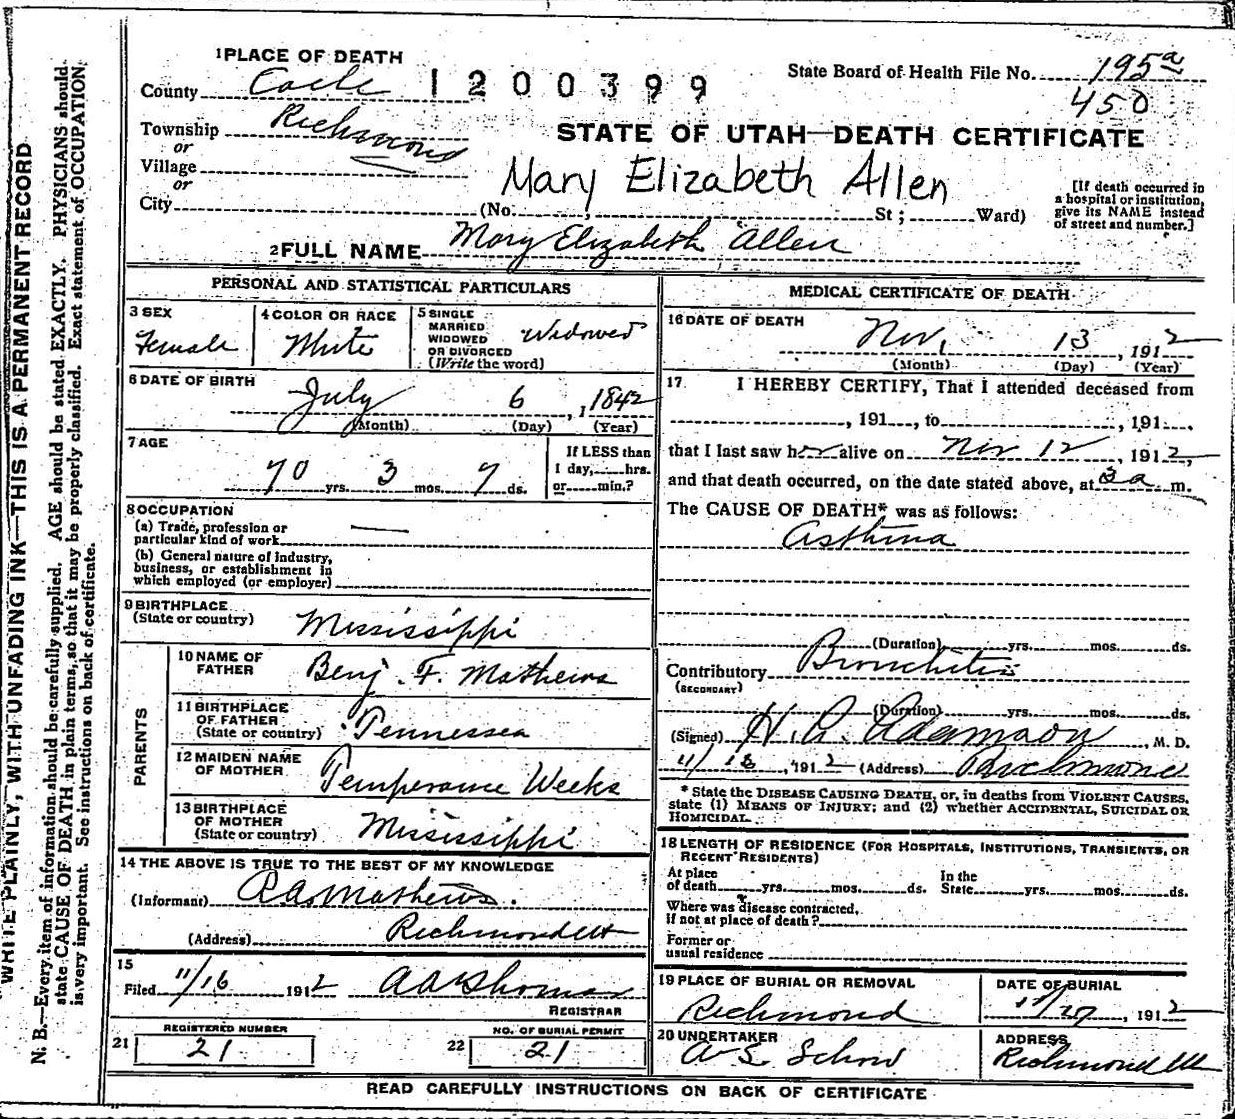 1 PLACE OF DEATH
County Cache
1200399
State Board of Health File No. 195a
450
Township Richmond
or
Village
or
City
STATE OF UTAH—DEATH CERTIFICATE
Mary Elizabeth Allen
(No. , St ; Ward)
[If death occurred in
a hospital or institution,
give its NAME instead
of street and number.]
2 FULL NAME Mary Elizabeth Allen
PERSONAL AND STATISTICAL PARTICULARS
3 SEX
Female
4 COLOR OR RACE
White
5 SINGLE
MARRIED
WIDOWED
OR DIVORCED
(Write the word)
Widowed
6 DATE OF BIRTH
July 6, 1842
(Month) (Day) (Year)
7 AGE
70 yrs. 3 mos. 7 ds.
If LESS than
1 day, hrs.
or min.?
8 OCCUPATION
(a) Trade, profession or
particular kind of work
(b) General nature of industry,
business, or establishment in
which employed (or employer)
9 BIRTHPLACE
(State or country) Mississippi
PARENTS
10 NAME OF
FATHER Benj. F. Mathews
11 BIRTHPLACE
OF FATHER
(State or country) Tennessee
12 MAIDEN NAME
OF MOTHER Temperance Weeks
13 BIRTHPLACE
OF MOTHER
(State or country) Mississippi
14 THE ABOVE IS TRUE TO THE BEST OF MY KNOWLEDGE
(Informant) Mathews.
(Address) Richmond Ut
15
Filed 11/16 1912
REGISTRAR
21 REGISTERED NUMBER
21
22 NO. OF BURIAL PERMIT
21
MEDICAL CERTIFICATE OF DEATH
16 DATE OF DEATH
Nov, 13, 1912
(Month) (Day) (Year)
17 I HEREBY CERTIFY, That I attended deceased from
, 191 , to , 191 .
that I last saw her alive on Nov 12, 1912,
and that death occurred, on the date stated above, at 3 a m.
The CAUSE OF DEATH* was as follows:
Asthma
(Duration) yrs. mos. ds.
Contributory Bronchitis
(SECONDARY)
(Duration) yrs. mos. ds.
(Signed) Adamson, M. D.
1912 (Address) Richmond
* State the DISEASE CAUSING DEATH, or, in deaths from VIOLENT CAUSES,
state (1) MEANS OF INJURY; and (2) whether ACCIDENTAL, SUICIDAL OR
HOMICIDAL.
18 LENGTH OF RESIDENCE (FOR HOSPITALS, INSTITUTIONS, TRANSIENTS, OR
RECENT RESIDENTS)
At place
of death yrs. mos. ds.
In the
State yrs. mos. ds.
Where was disease contracted,
if not at place of death?
Former or
usual residence
19 PLACE OF BURIAL OR REMOVAL
Richmond
DATE OF BURIAL
1912
20 UNDERTAKER
ADDRESS
Richmond
READ CAREFULLY INSTRUCTIONS ON BACK OF CERTIFICATE
WRITE PLAINLY, WITH UNFADING INK—THIS IS A PERMANENT RECORD
N. B.—Every item of information should be carefully supplied. AGE should be stated EXACTLY. PHYSICIANS should
state CAUSE OF DEATH in plain terms, so that it may be properly classified. Exact statement of OCCUPATION
is very important. See instructions on back of certificate.